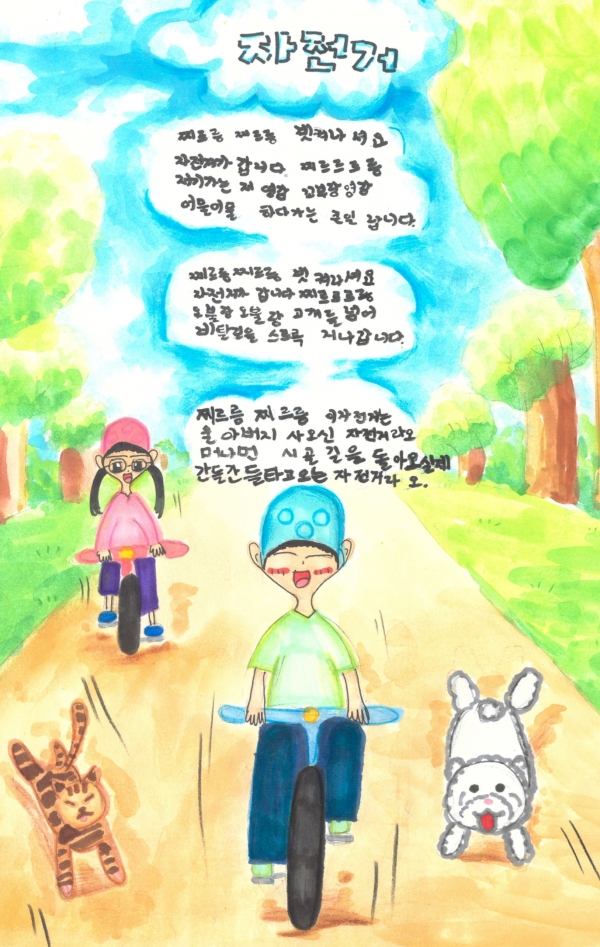 자전거
찌르릉 찌르릉 빗켜나 세요
자전거가 갑니다. 찌르르르릉
저기가는 저 영감 꼬부랑영감
어물어물 하다가는 큰일 납니다.
찌르릉찌르릉 빗 켜나세요
자전거가 갑니다 찌르르르릉
오불랑 오불랑 고개를 넘어
비탈길을 스르륵 지나갑니다.
찌르릉 찌르릉 이자전거는
울 아버지 사오신 자전거라오
머나먼 시골길을 돌아오실제
간들간들타고오는 자전거라 오.